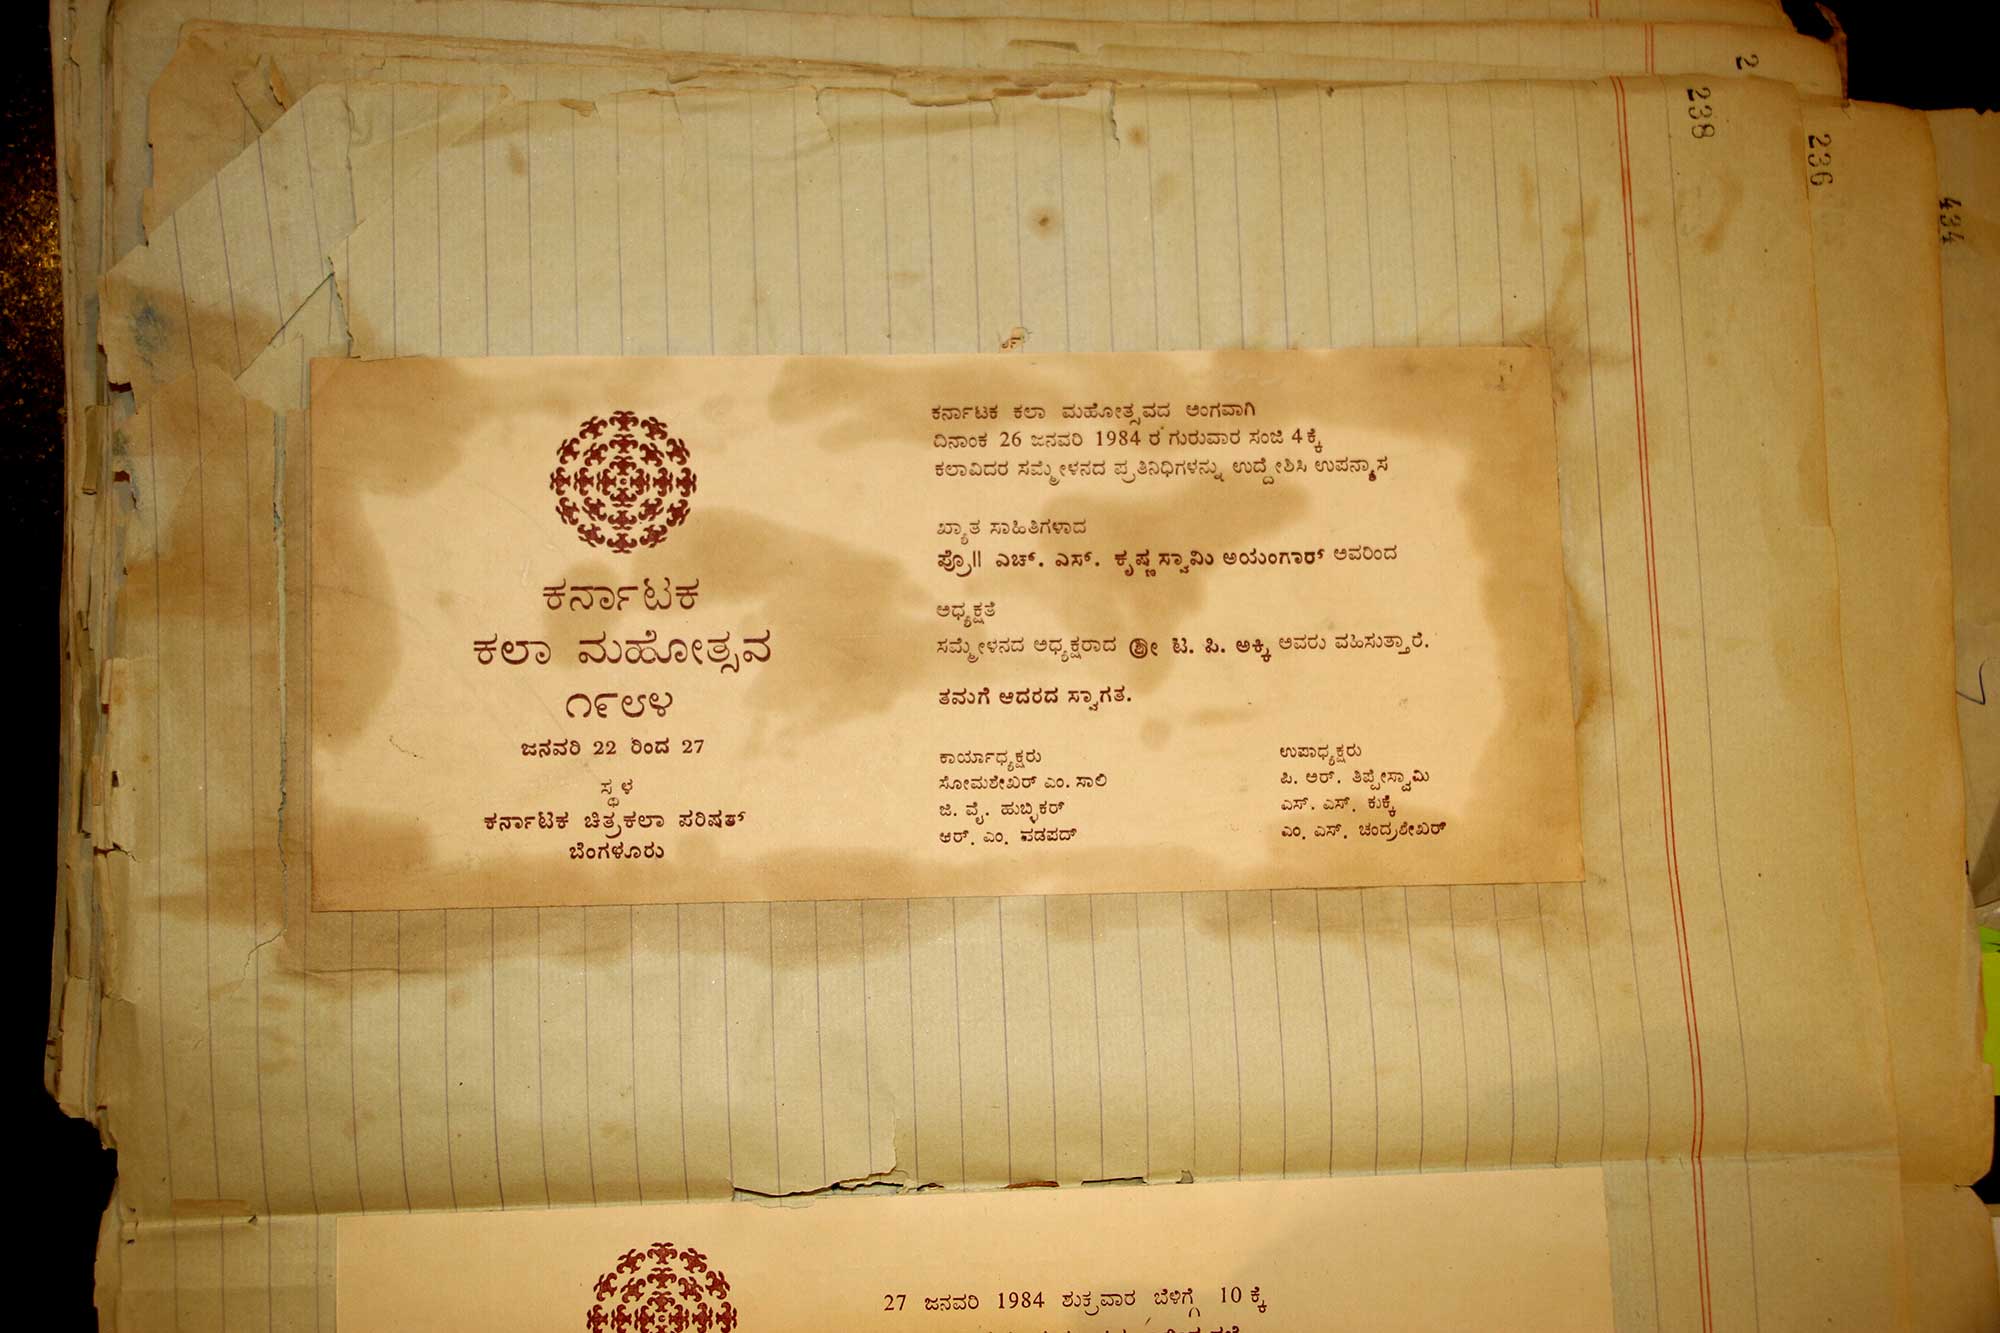 238
2
236
434
ಕರ್ನಾಟಕ
ಕಲಾ ಮಹೋತ್ಸವ
೧೯೮೪
ಜನವರಿ 22 ರಿಂದ 27
ಸ್ಥಳ
ಕರ್ನಾಟಕ ಚಿತ್ರಕಲಾ ಪರಿಷತ್
ಬೆಂಗಳೂರು
ಕರ್ನಾಟಕ ಕಲಾ ಮಹೋತ್ಸವದ ಅಂಗವಾಗಿ
ದಿನಾಂಕ 26 ಜನವರಿ 1984 ರ ಗುರುವಾರ ಸಂಜೆ 4 ಕ್ಕೆ
ಕಲಾವಿದರ ಸಮ್ಮೇಳನದ ಪ್ರತಿನಿಧಿಗಳನ್ನು ಉದ್ದೇಶಿಸಿ ಉಪನ್ಯಾಸ
ಖ್ಯಾತ ಸಾಹಿತಿಗಳಾದ
ಪ್ರೊ॥ ಎಚ್. ಎಸ್. ಕೃಷ್ಣಸ್ವಾಮಿ ಅಯಂಗಾರ್ ಅವರಿಂದ
ಅಧ್ಯಕ್ಷತೆ
ಸಮ್ಮೇಳನದ ಅಧ್ಯಕ್ಷರಾದ ಶ್ರೀ ಟಿ. ಪಿ. ಅಕ್ಕಿ ಅವರು ವಹಿಸುತ್ತಾರೆ.
ತಮಗೆ ಆದರದ ಸ್ವಾಗತ.
ಕಾರ್ಯಾಧ್ಯಕ್ಷರು
ಸೋಮಶೇಖರ್ ಎಂ. ಸಾಲಿ
ಜಿ. ವೈ. ಹುಬ್ಳಿಕರ್
ಆರ್. ಎಂ. ಹಡಪದ್
ಉಪಾಧ್ಯಕ್ಷರು
ಪಿ. ಆರ್. ತಿಪ್ಪೇಸ್ವಾಮಿ
ಎಸ್. ಎಸ್. ಕುಕ್ಕೆ
ಎಂ. ಎಸ್. ಚಂದ್ರಶೇಖರ್
27 ಜನವರಿ 1984 ಶುಕ್ರವಾರ ಬೆಳಿಗ್ಗೆ 10 ಕ್ಕೆ